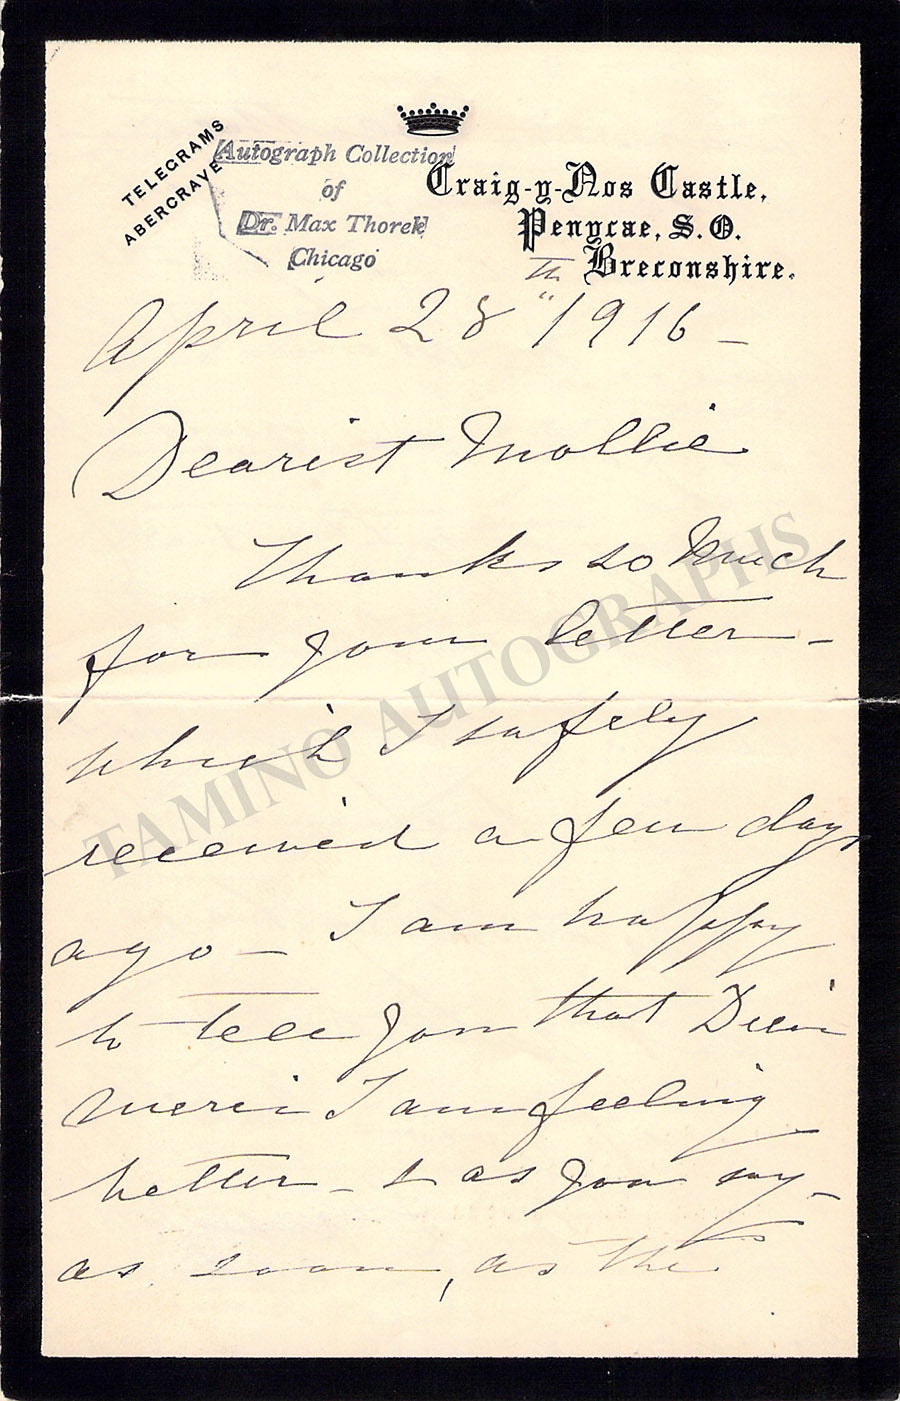 TELEGRAMS
ABERCRAVE
Autograph Collection
of
Dr. Max Thorek
Chicago
Craig-y-Nos Castle,
Penycae, S. O.
Breconshire.
April 28th 1916 —
Dearest Mollie
Thanks so much
for your letter —
which I safely
received a few days
ago — I am happy
to tell you that Dieu
merci I am feeling
better — & as you say —
as soon, as the
TAMINO AUTOGRAPHS